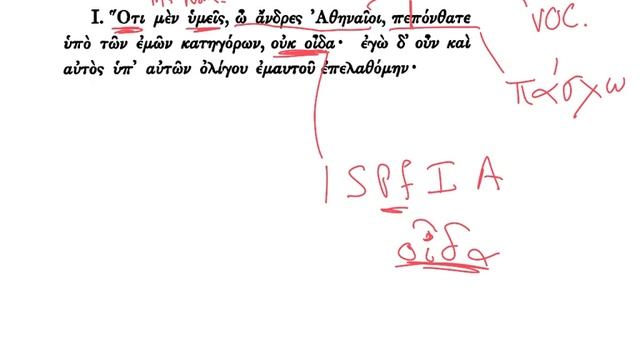 VOC.
I. Ὅτι μὲν ὑμεῖς, ὦ ἄνδρες Ἀθηναῖοι, πεπόνθατε
ὑπὸ τῶν ἐμῶν κατηγόρων, οὐκ οἶδα· ἐγὼ δ' οὖν καὶ
αὐτὸς ὑπ' αὐτῶν ὀλίγου ἐμαυτοῦ ἐπελαθόμην·
πάσχω
1 S Pf I A
οἶδα